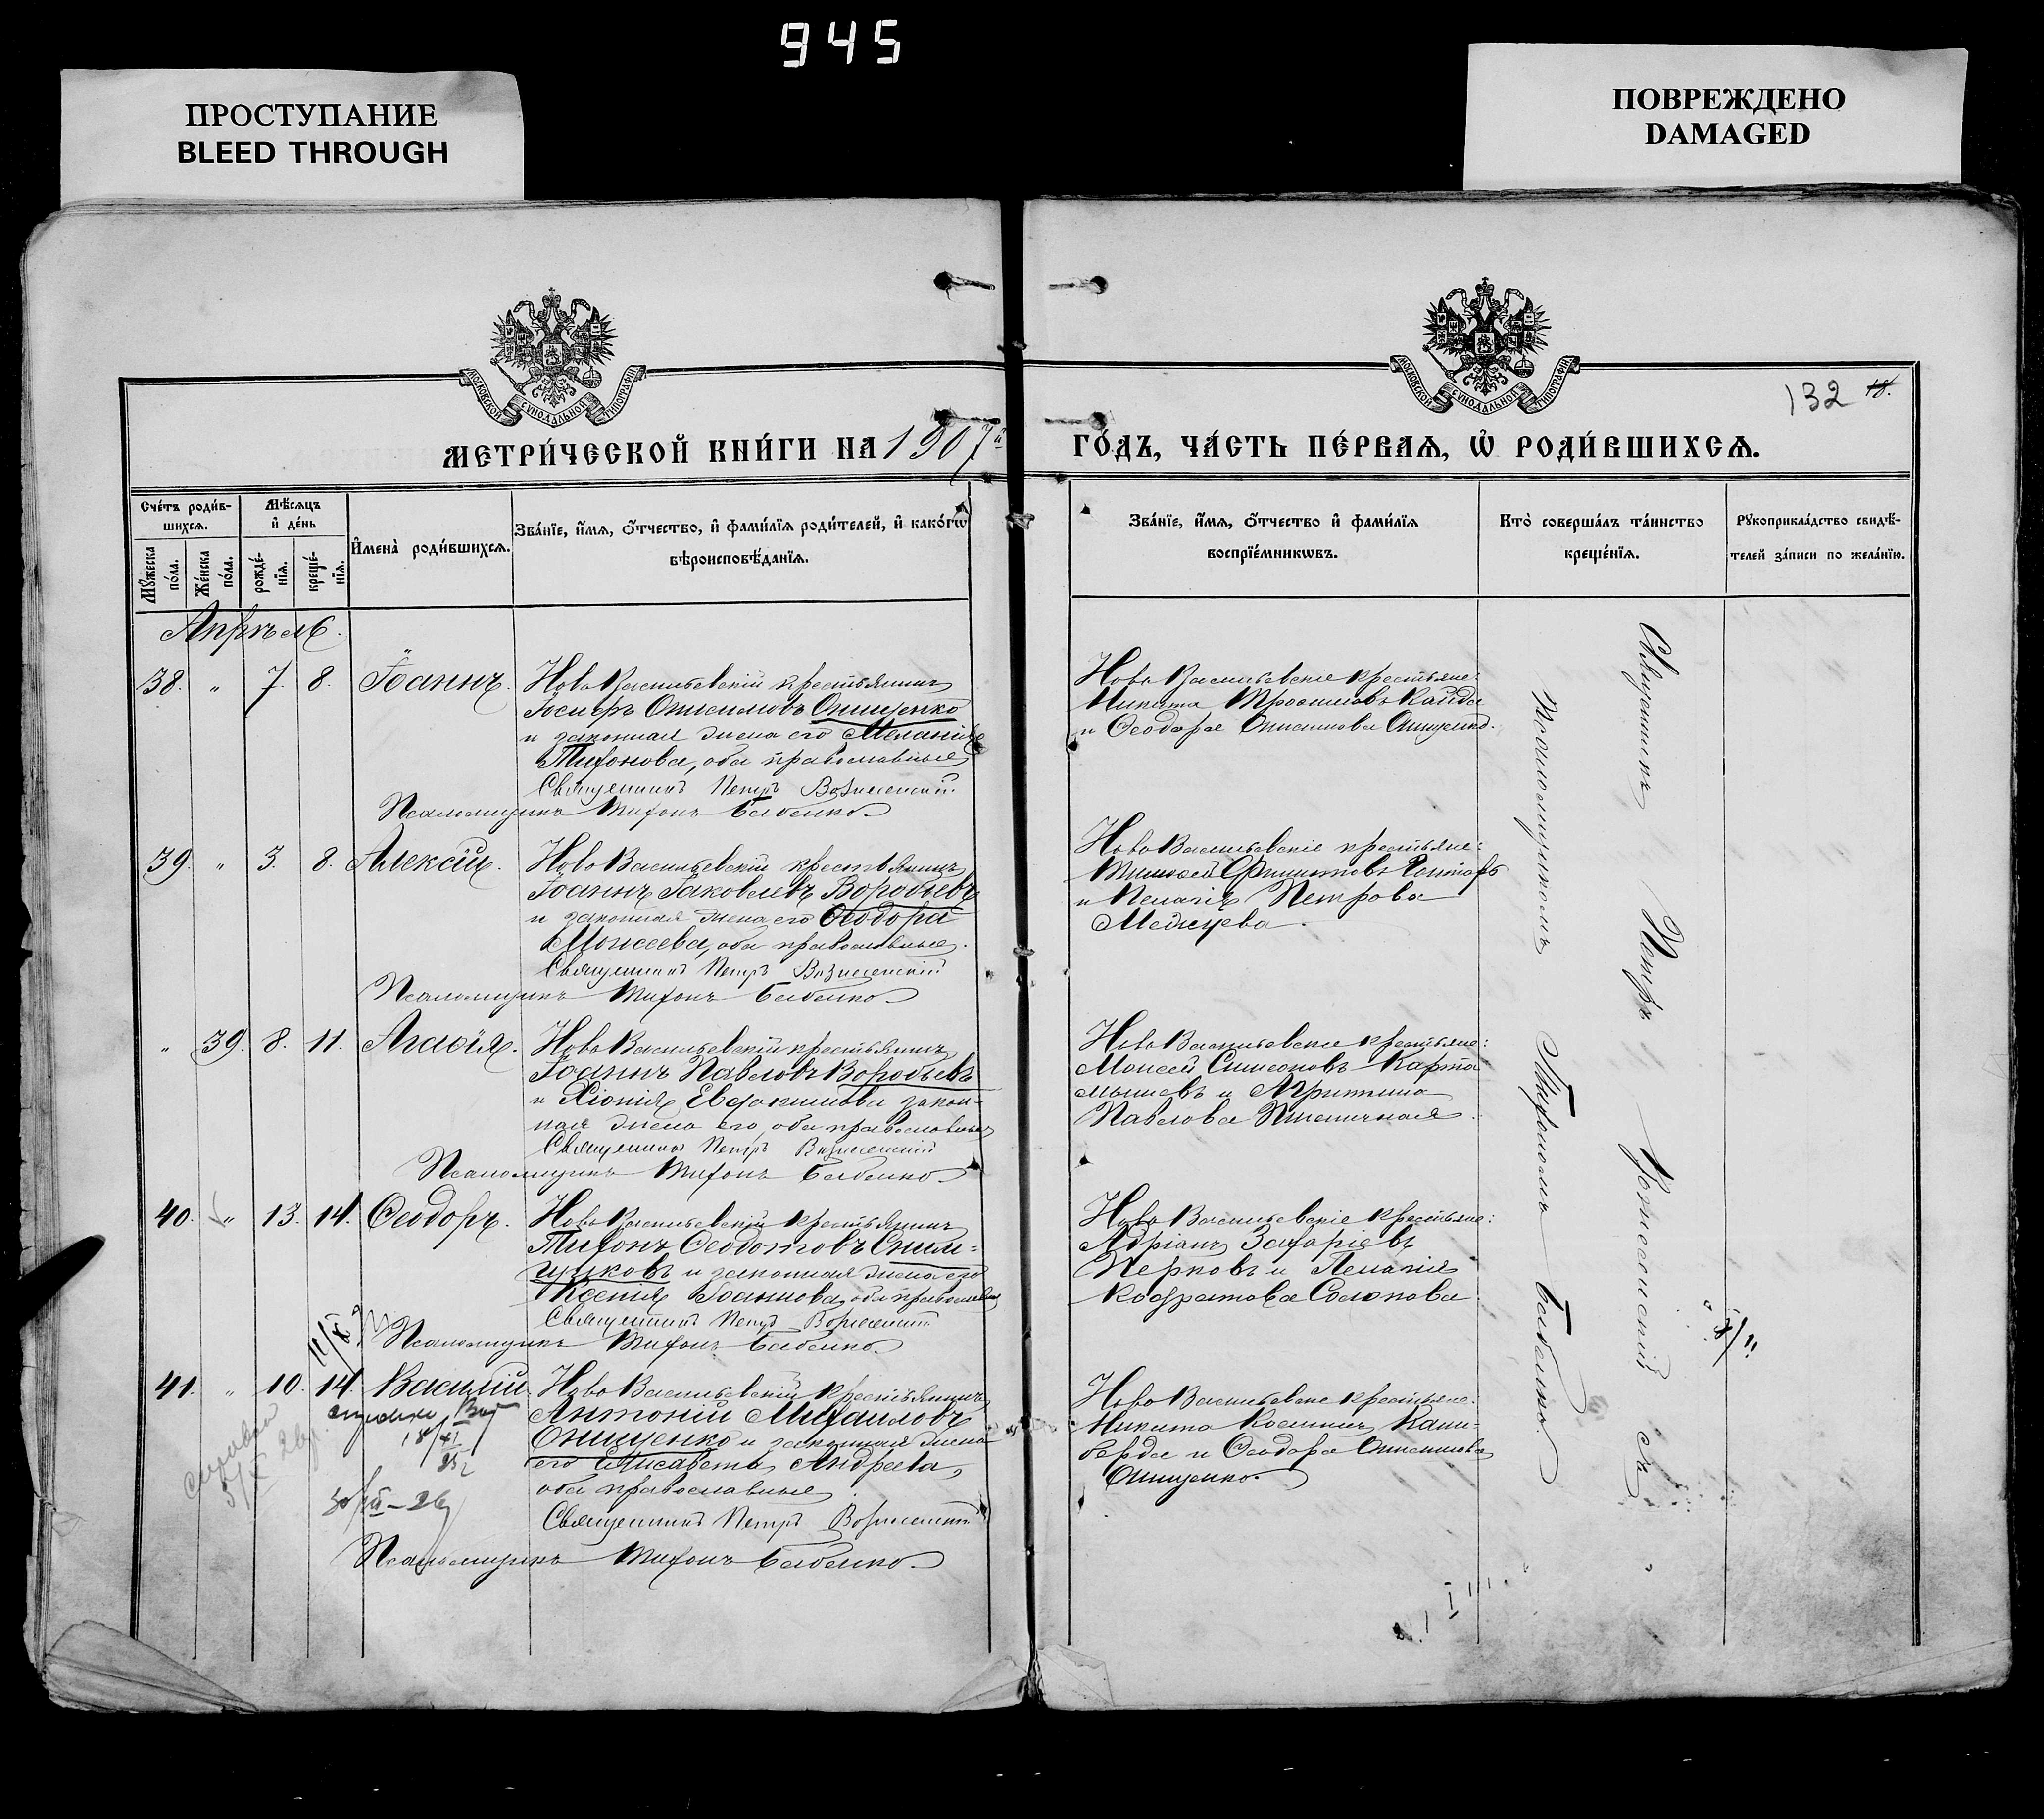 945
ПРОСТУПАНИЕ
BLEED THROUGH
ПОВРЕЖДЕНО
DAMAGED
МОСКОВСКОЙ СѴНОДАЛЬНОЙ ТИПОГРАФІИ
МОСКОВСКОЙ СѴНОДАЛЬНОЙ ТИПОГРАФІИ
132 18.
МЕТРИ́ЧЕСКОЙ КНИ́ГИ НА 1907й
ГО́ДЪ, ЧА́СТЬ ПЕ́РВАѦ, Ѡ҆ РОДИ́ВШИХСѦ.
Сче́тъ роди́в-
шихсѧ.
Мѣ́сѧцъ
и҆ де́нь
Мꙋ́жеска
по́ла.
Же́нска
по́ла.
рожде́-
нїѧ.
креще́-
нїѧ.
И҆мена̀ роди́вшихсѧ.
Зва́нїе, и҆́мѧ, ѻ҆́тчество, и҆ фами́лїѧ роди́телей, и҆ како́гѡ
вѣроисповѣ́данїѧ.
Зва́нїе, и҆́мѧ, ѻ҆́тчество и҆ фами́лїѧ
воспрїе́мникѡвъ.
Кто̀ соверша́лъ та́инство
креще́нїѧ.
Рꙋкоприкла́дство свидѣ́-
телей за́писи по жела́нїю.
Апрѣль.
38. " 7. 8. Іоаннъ.
Ново Васильевскій крестьянинъ
Іосифъ Онисимовъ Онищенко
и законная жена его Меланія
Тихонова, оба православные
Священникъ Петръ Вознесенскій
Псаломщикъ Тихонъ Бабенко.
Ново Васильевскіе крестьяне:
Никита Трофимовъ Кайда
и Ѳеодора Онисимова Онищенко.
39. " 3. 8. Алексій.
Ново Васильевскій крестьянинъ
Іоаннъ Іаковлевъ Воробьевъ
и законная жена его Ѳеодора
Моисеева, оба православные.
Священникъ Петръ Вознесенскій
Псаломщикъ Тихонъ Бабенко.
Ново Васильевскіе крестьяне:
Тимофей Филиповъ
и Пелагія Петрова
" 39. 8. 11. Агаѳія.
Ново Васильевскій крестьянинъ
Іоаннъ Павловъ Воробьевъ
и Хіонія Евдокимова закон-
ная жена его, оба православные
Священникъ Петръ Вознесенскій
Псаломщикъ Тихонъ Бабенко.
Ново Васильевскіе крестьяне:
Моисей Симеоновъ Карта-
мышевъ и Агрипина
Павлова Пшеничная.
40. " 13. 14. Ѳеодоръ.
Ново Васильевскій крестьянинъ
Тихонъ Ѳеодотовъ
и законная жена его
Ксенія Іоаннова, оба православные
Священникъ Петръ Вознесенскій
Псаломщикъ Тихонъ Бабенко.
Ново Васильевскіе крестьяне:
Адріанъ Захаріевъ
Перковъ и Пелагія
Кодратова Солопова
41. " 10. 14. Василій
Ново Васильевскій крестьянинъ
Антоній Михаиловъ
Онищенко и законная жена
его Елисавета Андреева,
оба православные
Священникъ Петръ Вознесенскій
Псаломщикъ Тихонъ Бабенко.
Ново Васильевскіе крестьяне:
Никита Косминъ Кали-
берда и Ѳеодора Онисимова
Онищенко.
Священникъ Петръ Вознесенскій съ
Псаломщикомъ Тихономъ Бабенко.